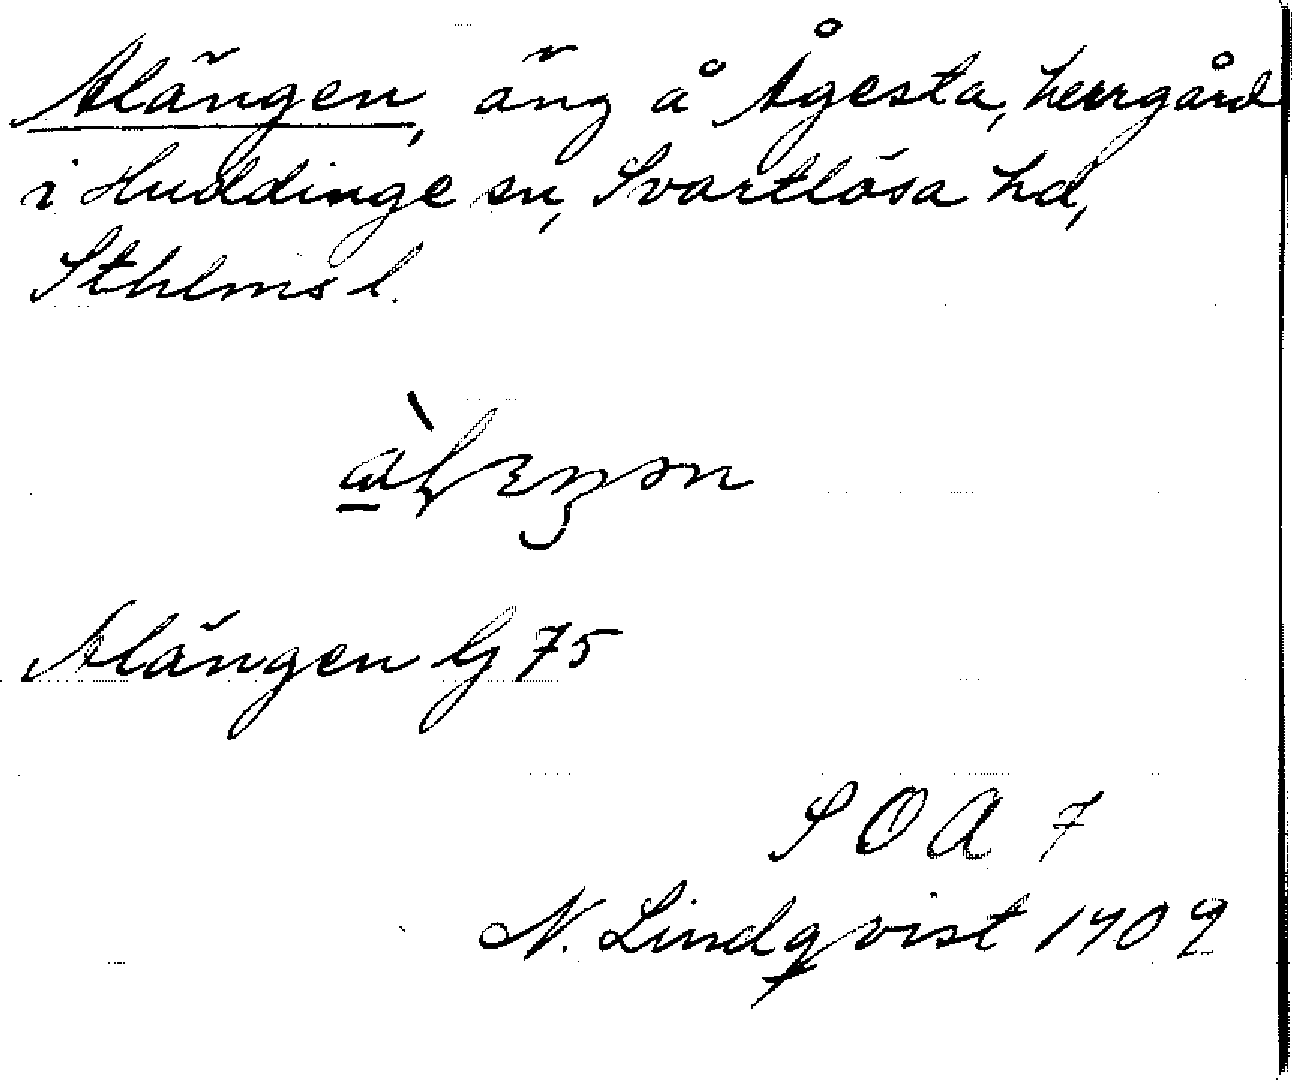 Alängen, äng å Ågesta, herrgård
i Huddinge sn, Svartlösa hd,
Sthlms l.
Alängen Lj 75
S O A 7
N. Lindqvist 1909